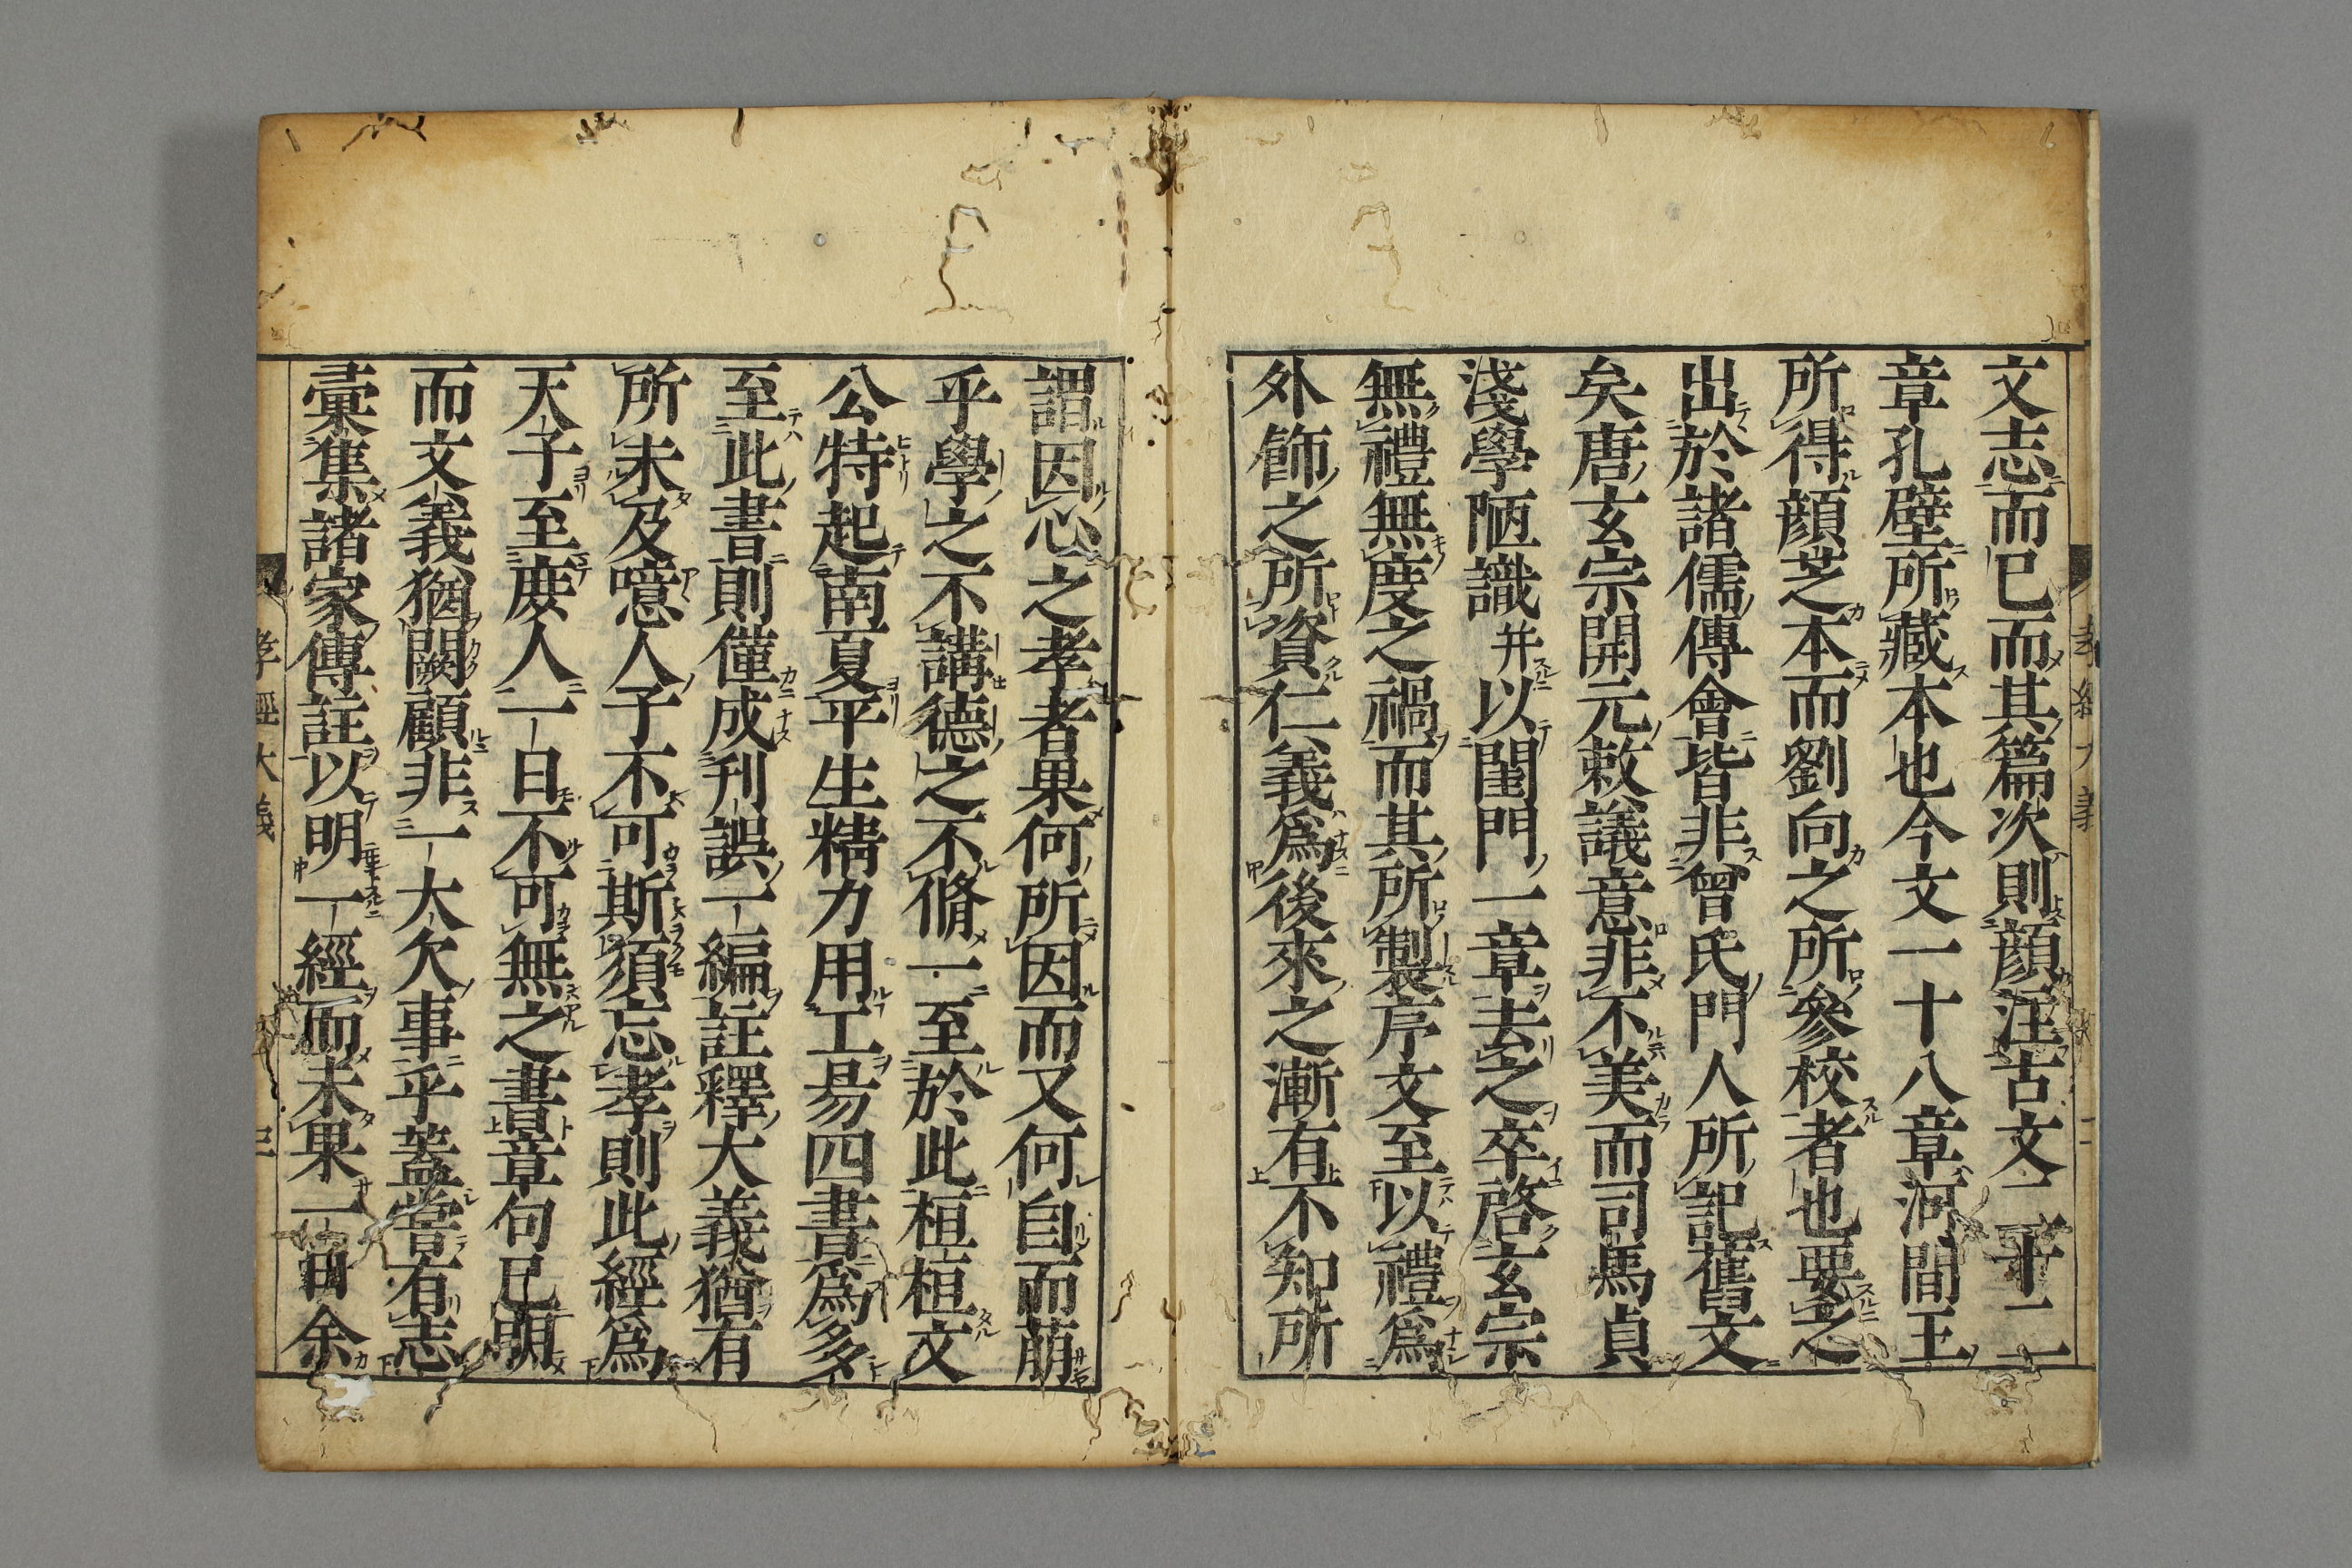 文志而已而其篇次則顔注古文二十二
章孔壁所藏本也今文一十八章河間王
所得顔芝本而劉向之所參校者也要之
出於諸儒傳會皆非曾氏門人所記舊文
矣唐玄宗開元敕議意非不美而司馬貞
淺學陋識并以閨門一章去之卒啓玄宗
無禮無度之禍而其所製序文至以禮爲
外飾之所資仁義爲後來之漸有不知所
謂因心之孝者果何所因而又何自而萠
乎學之不講德之不脩一至於此桓桓文
公特起南夏平生精力用工易四書爲多
至此書則僅成刋誤一編註釋大義猶有
所未及噫人子不可斯須忘孝則此經爲
天子至庻人一日不可無之書章句已明
而文義猶闕顧非一大欠事乎蓋嘗有志
彙集諸家傳註以明一經而未果一日余
孝經大義